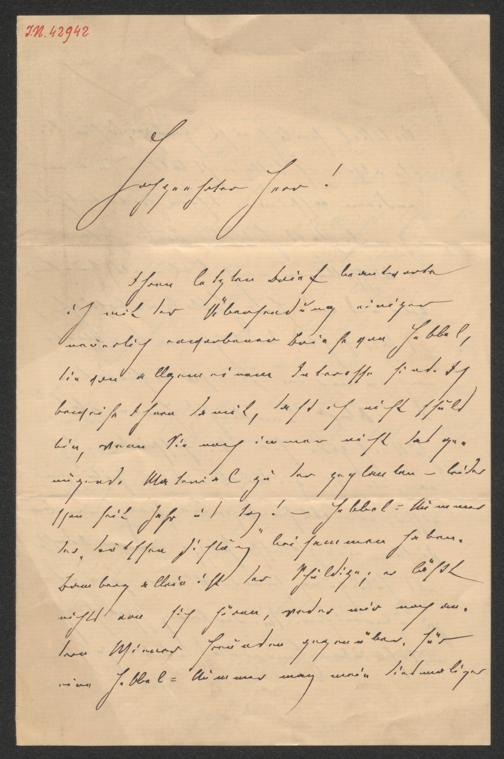 J.N. 42942
Hochgeehrter Herr!
Ihren letzten Brief beantworte
ich mit der Übersendung einiger
neuerlich erworbener Briefe von Hebbel,
die von allgemeinem Interesse sind. Ich
beweise Ihnen damit, daß ich nicht schuld
bin, wenn Sie noch immer nicht das ge-
nügende Material zu der geplanten –
schon seit Jahr u. Tag! – Hebbel-Nummer
der „Deutschen Dichtung“ beisammen haben.
Bamberg allein ist der Schuldige; er läßt
nichts von sich hören, weder mir noch an-
dern Wiener Freunden gegenüber. Für
eine Hebbel-Nummer mag mein diesmaliger